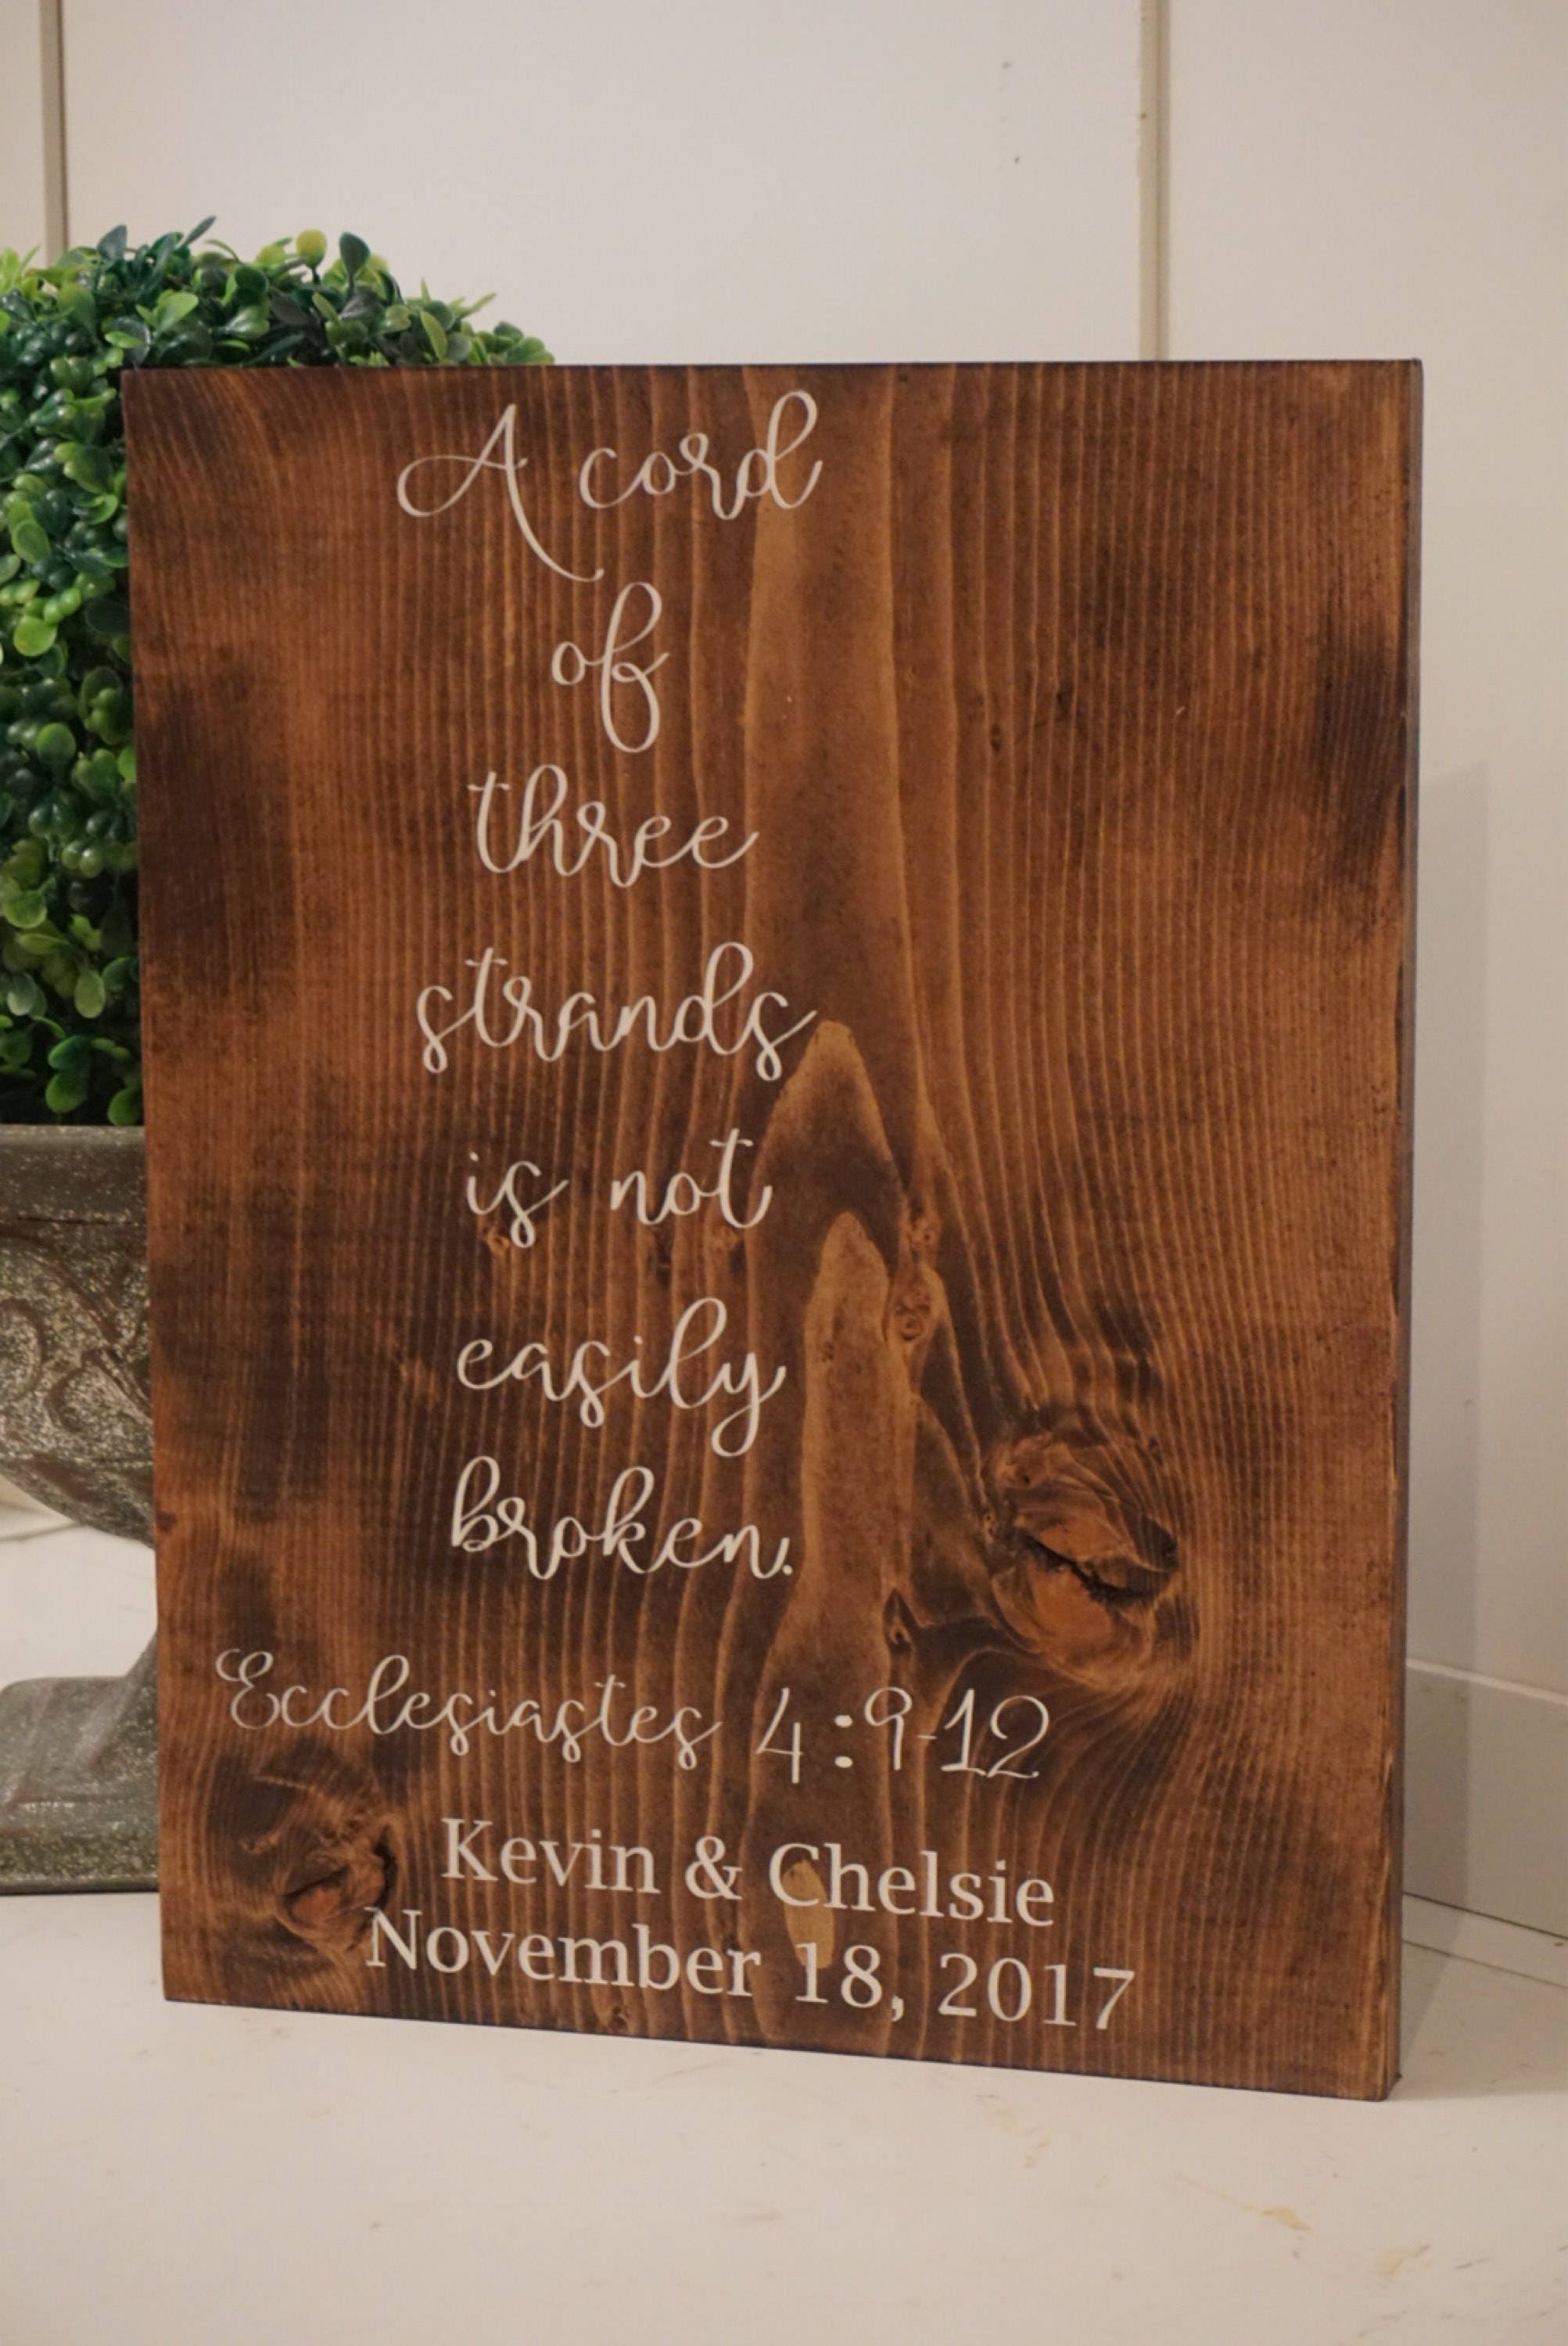 A cord
of
three
strands
is not
easily
broken.
Ecclesiastes 4:9-12
Kevin & Chelsie
November 18, 2017